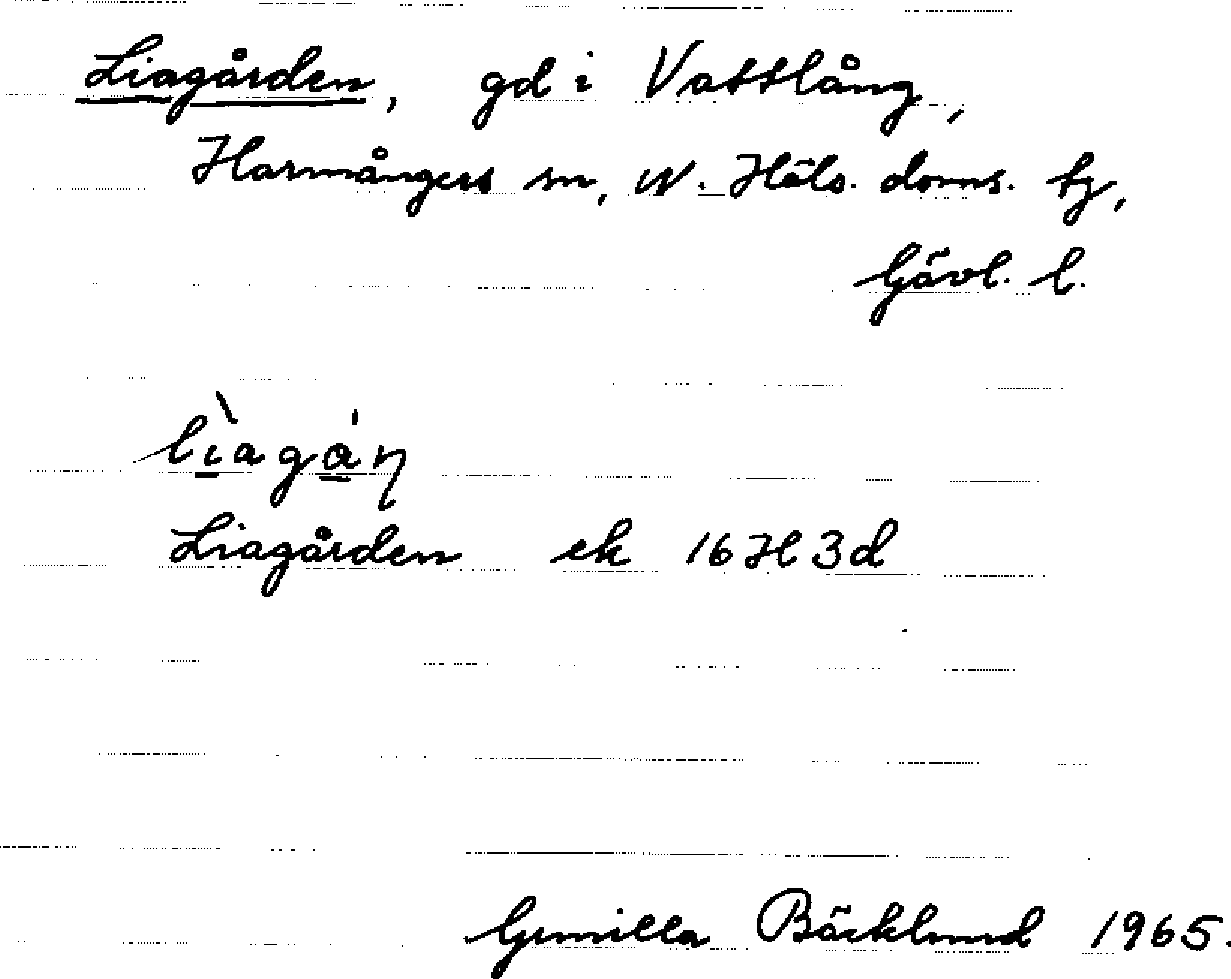 Liagården, gd i Vattlång,
Harmångers sn, N. Häls. doms. tg,
Gävl. l.
lìagán
Liagården ek 16H3d
Gunilla Bäcklund 1965.